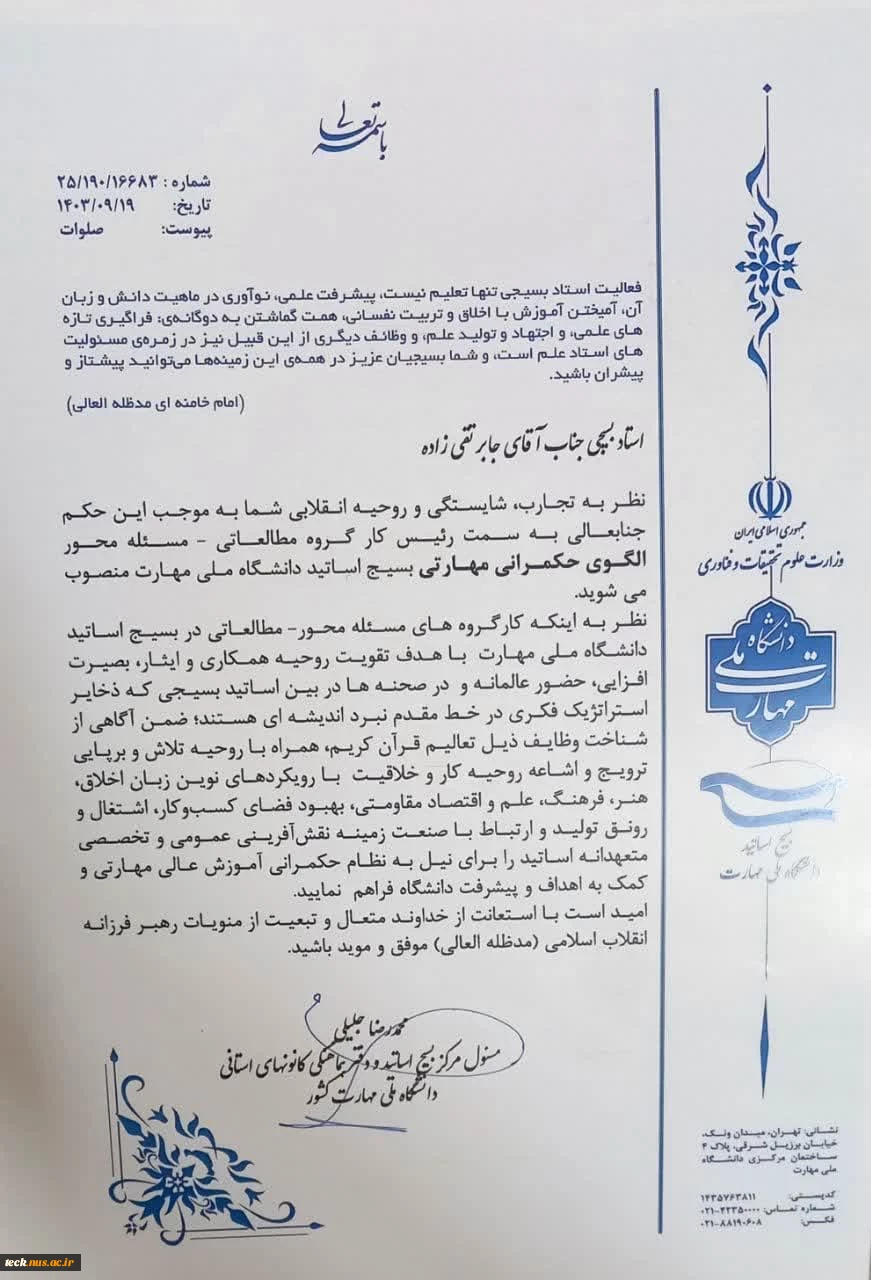 باسمه تعالی
شماره : ۲۵/۱۹۰/۱۶۶۸۳
تاریخ: ۱۴۰۳/۰۹/۱۹
پیوست: صلوات
فعالیت استاد بسیجی تنها تعلیم نیست، پیشرفت علمی، نوآوری در ماهیت دانش و زبان
آن، آمیختن آموزش با اخلاق و تربیت نفسانی، همت گماشتن به دوگانه‌ی: فراگیری تازه
های علمی، و اجتهاد و تولید علم، و وظائف دیگری از این قبیل نیز در زمره‌ی مسئولیت
های استاد علم است، و شما بسیجیان عزیز در همه‌ی این زمینه‌ها می‌توانید پیشتاز و
پیشران باشید.
(امام خامنه ای مدظله العالی)
استاد بسیجی جناب آقای جابر تقی زاده
نظر به تجارب، شایستگی و روحیه انقلابی شما به موجب این حکم
جنابعالی به سمت رئیس کار گروه مطالعاتی - مسئله محور
الگوی حکمرانی مهارتی بسیج اساتید دانشگاه ملی مهارت منصوب
می شوید.
نظر به اینکه کارگروه های مسئله محور- مطالعاتی در بسیج اساتید
دانشگاه ملی مهارت با هدف تقویت روحیه همکاری و ایثار، بصیرت
افزایی، حضور عالمانه و در صحنه ها در بین اساتید بسیجی که ذخایر
استراتژیک فکری در خط مقدم نبرد اندیشه ای هستند؛ ضمن آگاهی از
شناخت وظایف ذیل تعالیم قرآن کریم، همراه با روحیه تلاش و برپایی
ترویج و اشاعه روحیه کار و خلاقیت با رویکردهای نوین زبان اخلاق،
هنر، فرهنگ، علم و اقتصاد مقاومتی، بهبود فضای کسب‌وکار، اشتغال و
رونق تولید و ارتباط با صنعت زمینه نقش‌آفرینی عمومی و تخصصی
متعهدانه اساتید را برای نیل به نظام حکمرانی آموزش عالی مهارتی و
کمک به اهداف و پیشرفت دانشگاه فراهم نمایید.
امید است با استعانت از خداوند متعال و تبعیت از منویات رهبر فرزانه
انقلاب اسلامی (مدظله العالی) موفق و موید باشید.
محمدرضا جلیلی
مسئول مرکز بسیج اساتید و دفتر هماهنگی کانونهای استانی
دانشگاه ملی مهارت کشور
جمهوری اسلامی ایران
وزارت علوم تحقیقات و فناوری
دانشگاه
ملی
مهارت
بسیج اساتید
دانشگاه ملی مهارت
نشانی: تهران، میدان ونک،
خیابان برزیل شرقی، پلاک ۴
ساختمان مرکزی دانشگاه
ملی مهارت
کدپستی: ۱۴۳۵۷۶۳۸۱۱
شماره تماس: ۰۲۱-۴۲۳۵۰۰۰۰
فکس: ۰۲۱-۸۸۱۹۰۶۰۸
teck.nus.ac.ir